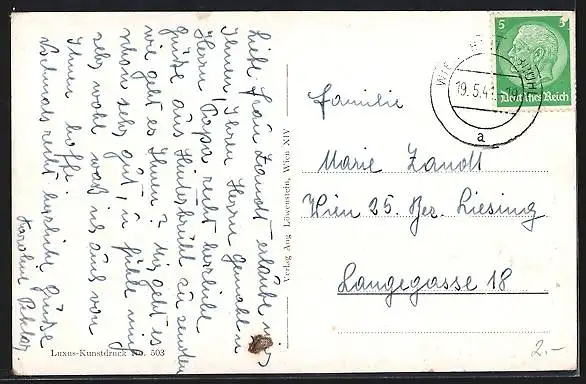 Liebe Frau Zandt erlaube mir
Ihnen, Ihrem Herrn Gemahl u
Herrn Papa recht herzliche
Grüße aus Hinterbrühl zu senden
wie geht es Ihnen? Mir geht es
schon sehr gut, u fühle mich
sehr wohl was ich auch von
Ihnen hoffe.
Nochmals recht herzliche Grüße
Karoline
Luxus-Kunstdruck No. 503
Verlag Aug. Löwenstein, Wien XIV
5 5
Deutsches Reich
19.5.41
a
Familie
Marie Zandt
Wien 25. Bez. Liesing
Langegasse 18
2.-